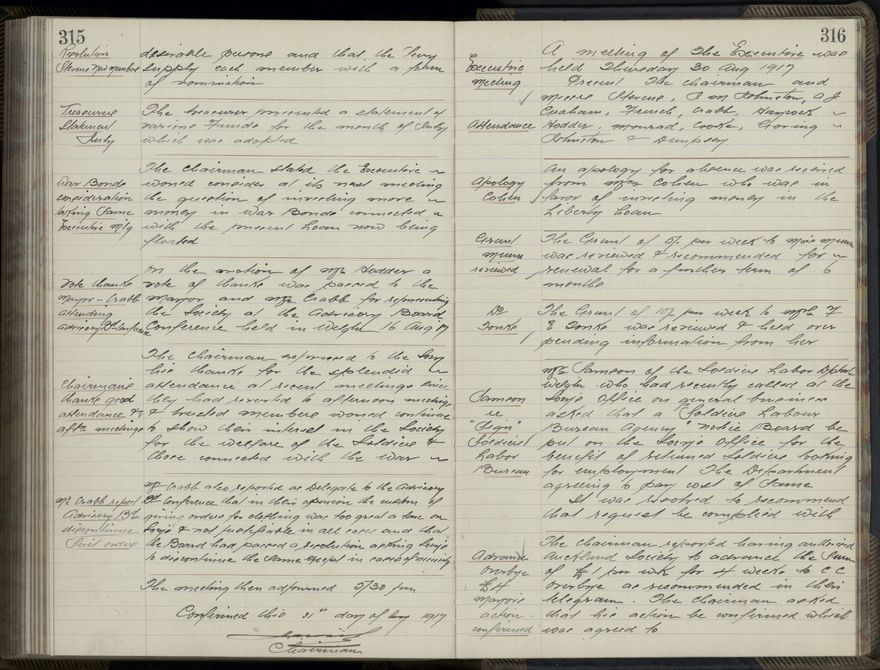 315
Resolution
desirable persons and that the Secy
supply each member with a form
of nomination
Treasurers
Statement
July
The treasurer presented a statement of
various Funds for the month of July
which was adopted
War Bonds
consideration
Executive Mtg
The Chairman stated the Executive
would consider at its next meeting
the question of investing more
money in War Bonds connected
with the present Loan now being
floated
Vote thanks
Mayor - Crabb
attending
Advisory Bd Conference
On the motion of Mr Hodder a
vote of thanks was passed to the
Mayor and Mr Crabb for representing
the Society at the Advisory Board
Conference held in Welgtn 16 Aug 17
Chairmans
thanks good
attendance
aftn meetings
The Chairman expressed to the Socy
his thanks for the splendid
attendance at recent meetings since
they had reverted to afternoon meetings
& trusted members would continue
to show their interest in the Society
for the welfare of the Soldiers &
those connected with the war
Mr Crabb report
Advisory Bd
discontinue
Suit orders
Mr Crabb also reported as delegate to the Advisory
Bd Conference that in their opinion the custom of
giving orders for clothing was too great a tax on
Socys & not justifiable in all cases and that
the Board had passed a resolution asking Socys
to discontinue the same except in cases of necessity
The meeting then adjourned 5/30 pm
Confirmed this 31st day of Aug 1917
Chairman
316
Executive
Meeting
A meeting of the Executive was
held Thursday 30 Aug 1917
Attendance
Present The Chairman and
Johnston, A J
Graham, French, Crabb, Haycock
Hodder, Cooke, Goring
Johnston & Dempsey
Apology
Cohen
An apology for absence was received
from Mr Cohen who was in
favor of investing money in the
Liberty Loan
Grant
Munn
reviewed
The Grant of 5/- per week to Miss Munn
was reviewed & recommended for
renewal for a further term of 6
months
Do
Tonks
The Grant of 10/- per week to Mrs F
E Tonks was reviewed & held over
pending information from her
Samson
re
"Sign"
Soldiers
Labor
Bureau
Mr Samson of the Soldiers Labor Dptmt
Welgtn who had recently called at the
Socys Office on general business
asked that a "Soldiers Labour
Bureau Agency" Notice Board be
put on the Socys Office for the
benefit of returned Soldiers looking
for employment The Department
agreeing to pay cost of same
It was resolved to recommend
that request be complied with
Advance
Overbye
£4
action
confirmed
The Chairman reported having authorised
Auckland Society to advance the sum
of £1 per wk for 4 weeks to C C
Overbye as recommended in their
telegram. The Chairman asked
that his action be confirmed which
was agreed to